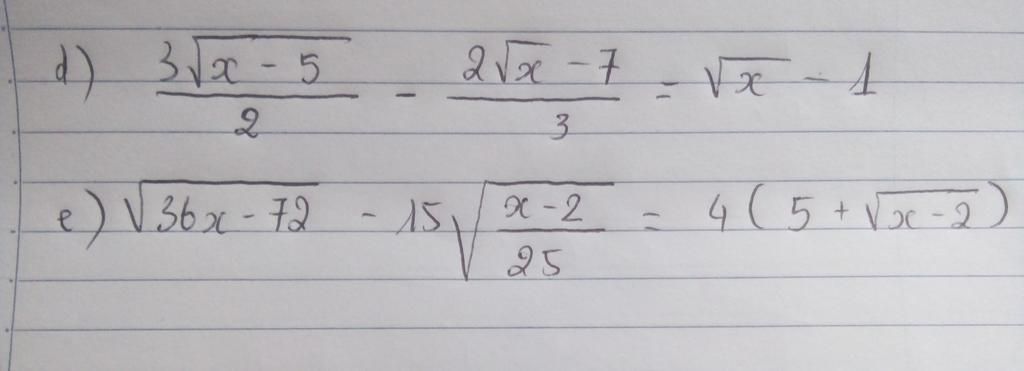 d) \frac{3\sqrt{x-5}}{2} - \frac{2\sqrt{x}-7}{3} = \sqrt{x} - 1
e) \sqrt{36x-72} - 15\sqrt{\frac{x-2}{25}} = 4(5+\sqrt{x-2})